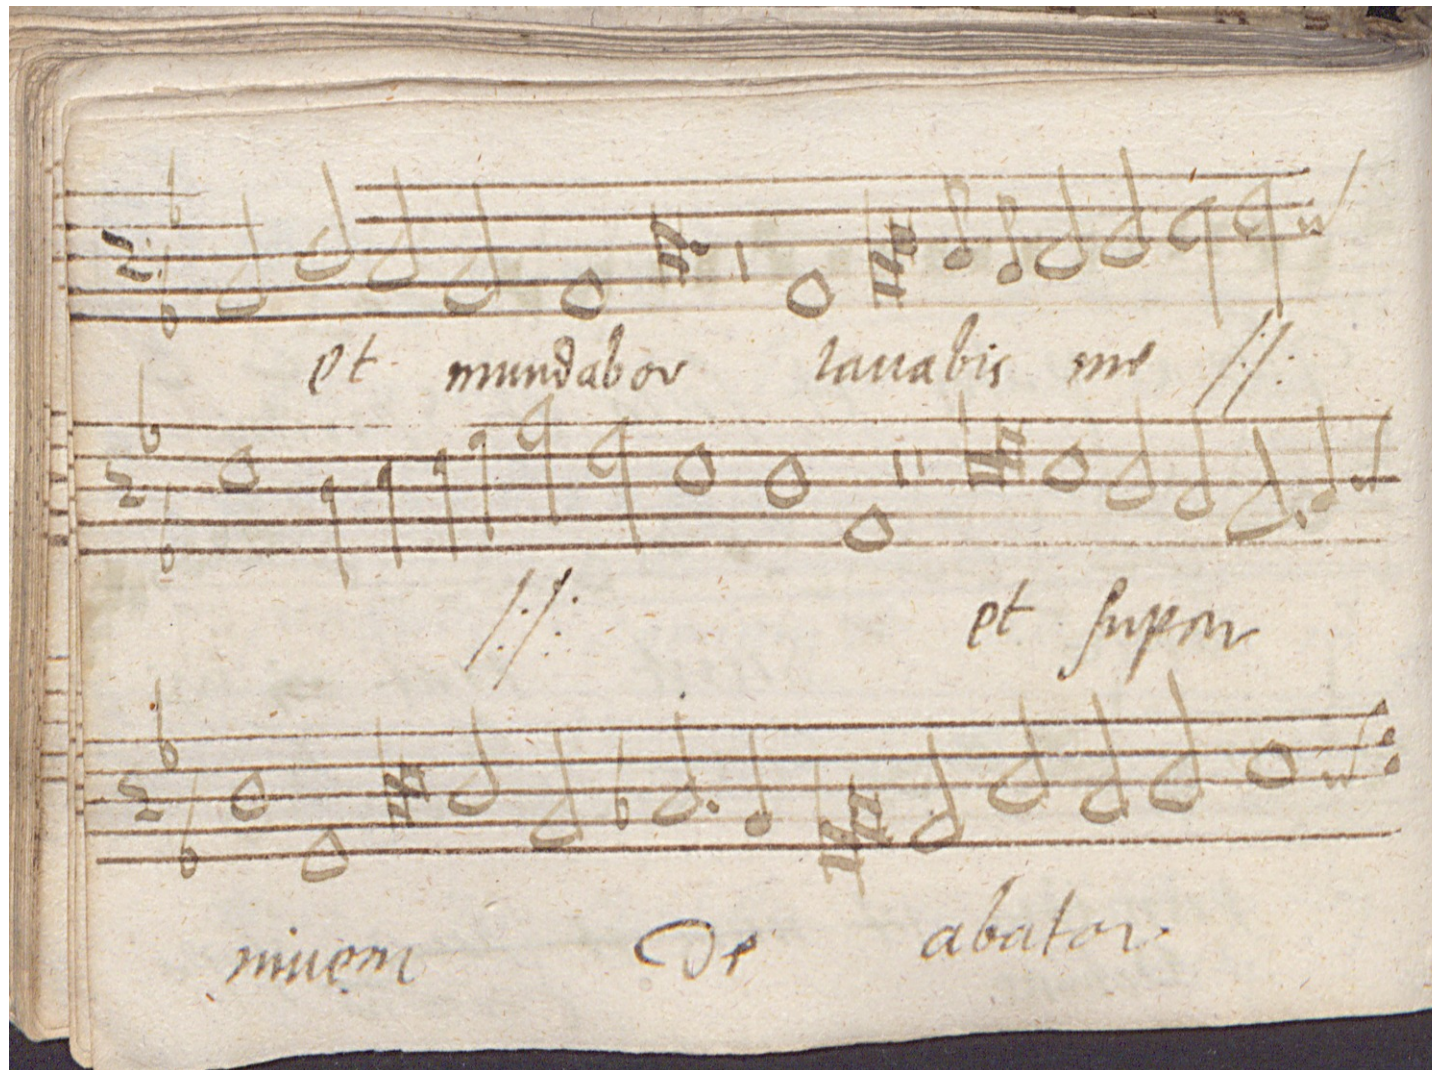 et mundabor lauabis me //.
//.
et super
niuem De abator